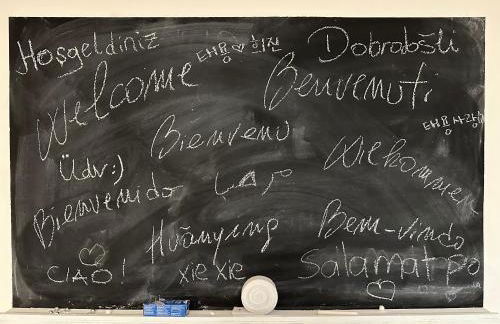 Hoşgeldiniz
태용♡희진
Dobrodošli
Welcome
Benvenuti
태용 사랑해
Bienvenu
Üdv:)
Wilkommen
مرحبا
Bienvenido
Bem-vindo
Huānyíng
CIAO!
xie xie
Salamat po